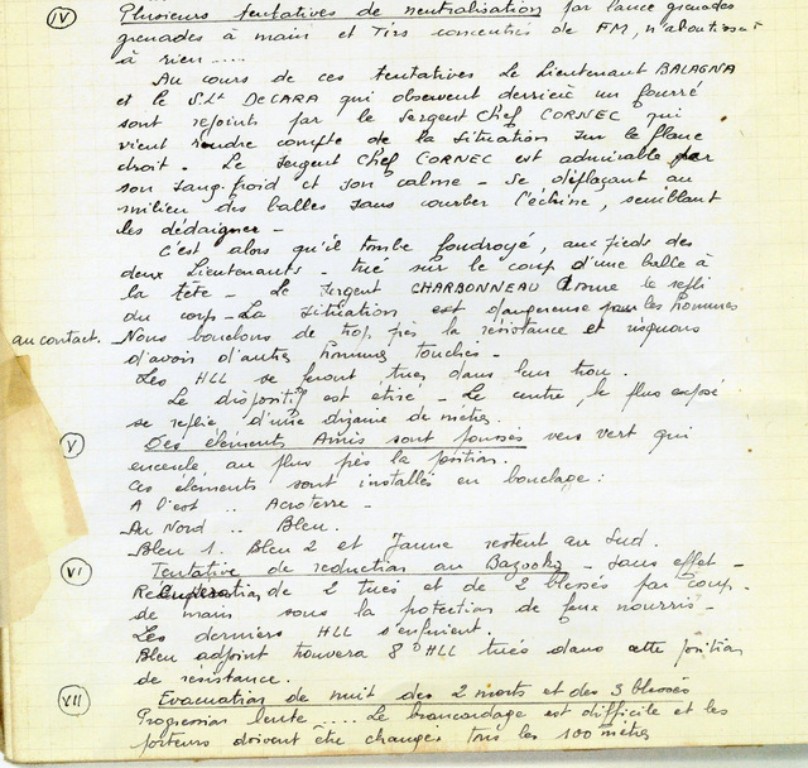 IV Plusieurs tentatives de neutralisation par lance grenades
grenades à main et Tirs concentrés de FM, n'aboutissent
à rien .....
Au cours de ces tentatives Le Lieutenant BALAGNA
et le S.Lt DECARA qui observent derrière un fourré
sont rejoints par le Sergent Chef CORNEC qui
vient rendre compte de la situation sur le flanc
droit - Le Sergent Chef CORNEC est admirable par
son sang-froid et son calme - Se déplaçant au
milieu des balles sans courber l'échine, semblant
les dédaigner -
C'est alors qu'il tombe foudroyé, aux pieds des
deux Lieutenants - tué sur le coup d'une balle à
la tête - Le Sergent CHARBONNEAU assure le repli
du corps - La situation est dangereuse pour les hommes
au contact. Nous bouclons de trop près la résistance et risquons
d'avoir d'autres hommes touchés -
Les HLL se feront tuer dans leur trou.
Le dispositif est étiré - Le centre, le plus exposé
se replie d'une dizaine de mètres.
V Des éléments Amis sont poussés vers vert qui
encercle au plus près la position.
Ces éléments sont installés en bouclage :
A l'est .. Acroterre -
Au Nord .. Bleu.
Bleu 1. Bleu 2 et Jaune restent au Sud.
VI Tentative de reduction au Bazooka - sans effet -
Recuperation de 2 tués et de 2 blessés par coup
de main sous la protection de feux nourris -
Les derniers HLL s'enfuient.
Bleu adjoint trouvera 8 HLL tués dans cette position
de résistance.
VII Evacuation de nuit des 2 morts et des 3 blessés
Progression lente .... Le brancardage est difficile et les
porteurs doivent être changés tous les 100 mètres